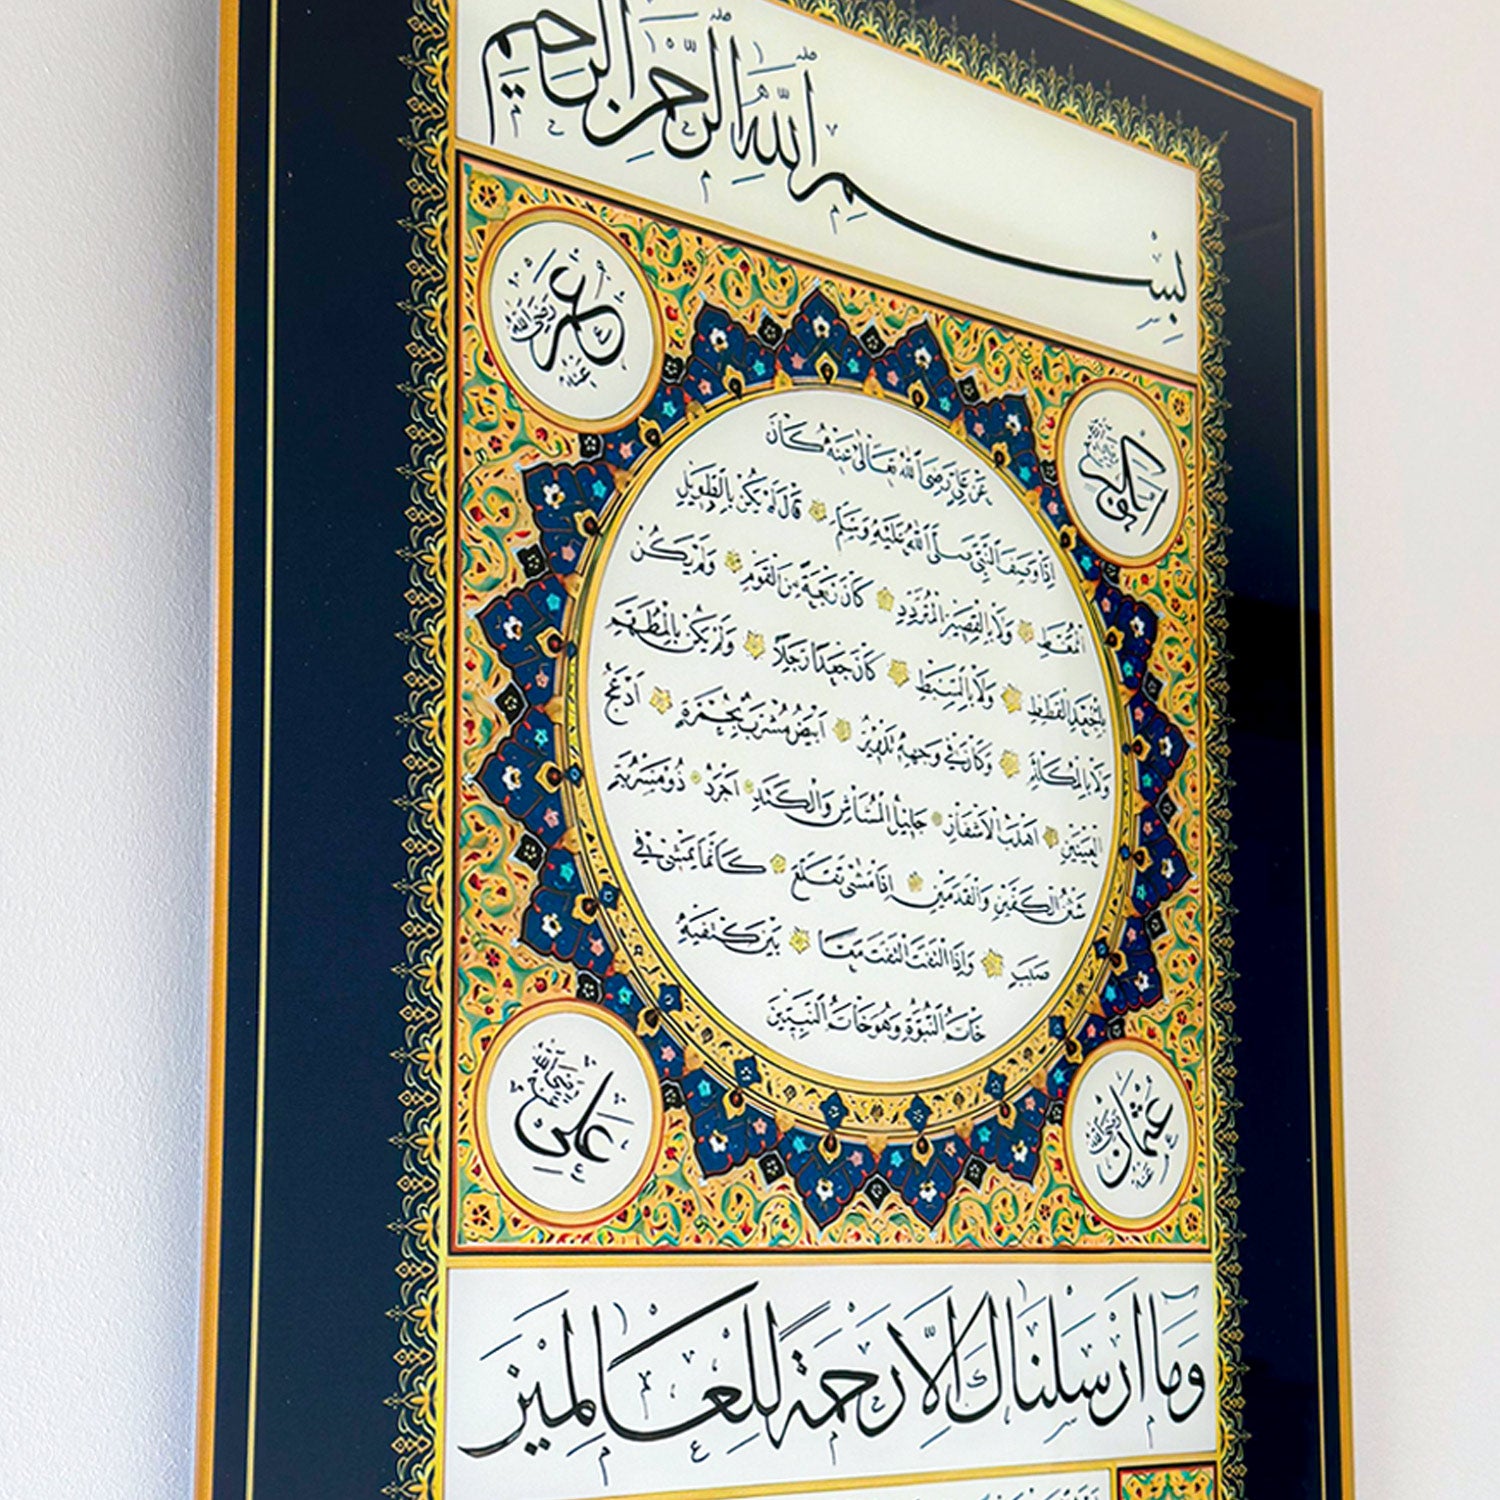 بِسْمِ اللهِ الرَّحْمٰنِ الرَّحِيمِ
أبو بكر رضي الله عنه
عمر رضي الله عنه
عَنْ عَلِيٍّ رَضِيَ اللهُ تَعَالٰى عَنْهُ كَانَ
اِذَا وَصَفَ النَّبِيَّ صَلَّى اللهُ عَلَيْهِ وَسَلَّمَ قَالَ لَمْ يَكُنْ بِالطَّوِيلِ
الْمُمَّغِطِ وَلَا بِالْقَصِيرِ الْمُتَرَدِّدِ كَانَ رَبْعَةً مِنَ الْقَوْمِ وَلَمْ يَكُنْ
بِالْجَعْدِ الْقَطَطِ وَلَا بِالسَّبِطِ كَانَ جَعْدًا رَجِلًا وَلَمْ يَكُنْ بِالْمُطَهَّمِ
وَلَا بِالْمُكَلْثَمِ وَكَانَ فِي وَجْهِهِ تَدْوِيرٌ اَبْيَضُ مُشْرَبٌ بِحُمْرَةٍ اَدْعَجُ
الْعَيْنَيْنِ اَهْدَبُ الْاَشْفَارِ جَلِيلُ الْمُشَاشِ وَالْكَتَدِ اَجْرَدُ ذُو مَسْرُبَةٍ
شَثْنُ الْكَفَّيْنِ وَالْقَدَمَيْنِ اِذَا مَشٰى تَقَلَّعَ كَاَنَّمَا يَمْشِي فِي
صَبَبٍ وَاِذَا الْتَفَتَ الْتَفَتَ مَعًا بَيْنَ كَتِفَيْهِ
خَاتَمُ النُّبُوَّةِ وَهُوَ خَاتَمُ النَّبِيِّينَ
عثمان رضي الله عنه
علي رضي الله عنه
وَمَا اَرْسَلْنَاكَ اِلَّا رَحْمَةً لِلْعَالَمِينَ